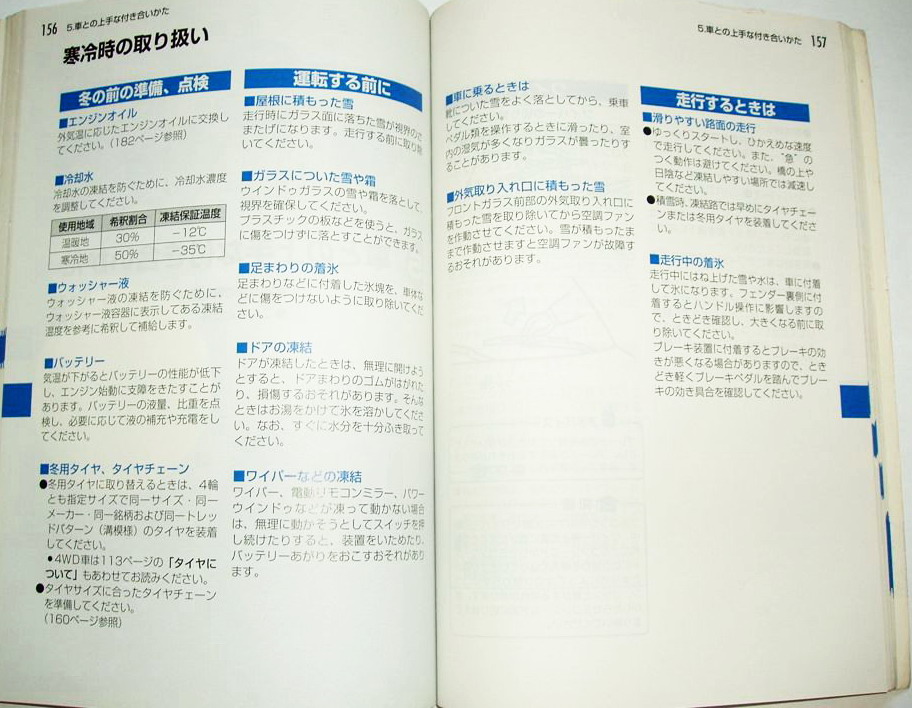 156 5.車との上手な付き合いかた
寒冷時の取り扱い
冬の前の準備、点検
■エンジンオイル
外気温に応じたエンジンオイルに交換し
てください。(182ページ参照)
■冷却水
冷却水の凍結を防ぐために、冷却水濃度
を調整してください。
使用地域 希釈割合 凍結保証温度
温暖地 30% −12℃
寒冷地 50% −35℃
■ウォッシャー液
ウォッシャー液の凍結を防ぐために、
ウォッシャー液容器に表示してある凍結
温度を参考に希釈して補給します。
■バッテリー
気温が下がるとバッテリーの性能が低下
し、エンジン始動に支障をきたすことが
あります。バッテリーの液量、比重を点
検し、必要に応じて液の補充や充電をし
てください。
■冬用タイヤ、タイヤチェーン
●冬用タイヤに取り替えるときは、4輪
とも指定サイズで同一サイズ・同一
メーカー・同一銘柄および同一トレッ
ドパターン(溝模様)のタイヤを装着
してください。
•4WD車は113ページの「タイヤに
ついて」もあわせてお読みください。
●タイヤサイズに合ったタイヤチェーン
を準備してください。
(160ページ参照)
運転する前に
■屋根に積もった雪
走行時にガラス面に落ちた雪が視界の
またげになります。走行する前に取り除
いてください。
■ガラスについた雪や霜
ウインドゥガラスの雪や霜を落として、
視界を確保してください。
プラスチックの板などを使うと、ガラス
に傷をつけずに落とすことができます。
■足まわりの着氷
足まわりなどに付着した氷塊を、車体な
どに傷をつけないように取り除いてくだ
さい。
■ドアの凍結
ドアが凍結したときは、無理に開けよう
とすると、ドアまわりのゴムがはがれた
り、損傷するおそれがあります。そんな
ときはお湯をかけて氷を溶かしてくださ
い。なお、すぐに水分を十分ふき取って
ください。
■ワイパーなどの凍結
ワイパー、電動リモコンミラー、パワー
ウインドゥなどが凍って動かない場合
は、無理に動かそうとしてスイッチを押
し続けたりすると、装置をいためたり、
バッテリーあがりをおこすおそれがあり
ます。
5.車との上手な付き合いかた 157
■車に乗るときは
靴についた雪をよく落としてから、乗車
してください。
ペダル類を操作するときに滑ったり、室
内の湿気が多くなりガラスが曇ったりす
ることがあります。
■外気取り入れ口に積もった雪
フロントガラス前部の外気取り入れ口に
積もった雪を取り除いてから空調ファン
を作動させてください。雪が積もったま
まで作動させますと空調ファンが故障す
るおそれがあります。
走行するときは
■滑りやすい路面の走行
●ゆっくりスタートし、ひかえめな速度
で走行してください。また、“急”の
つく動作は避けてください。橋の上や
日陰など凍結しやすい場所では減速し
てください。
●積雪時、凍結路では早めにタイヤチェー
ンまたは冬用タイヤを装着してくださ
い。
■走行中の着氷
走行中にはね上げた雪や水は、車に付着
して氷になります。フェンダー裏側に付
着するとハンドル操作に影響しますの
で、ときどき確認し、大きくなる前に取
り除いてください。
ブレーキ装置に付着するとブレーキの効
きが悪くなる場合がありますので、とき
どき軽くブレーキペダルを踏んでブレー
キの効き具合を確認してください。